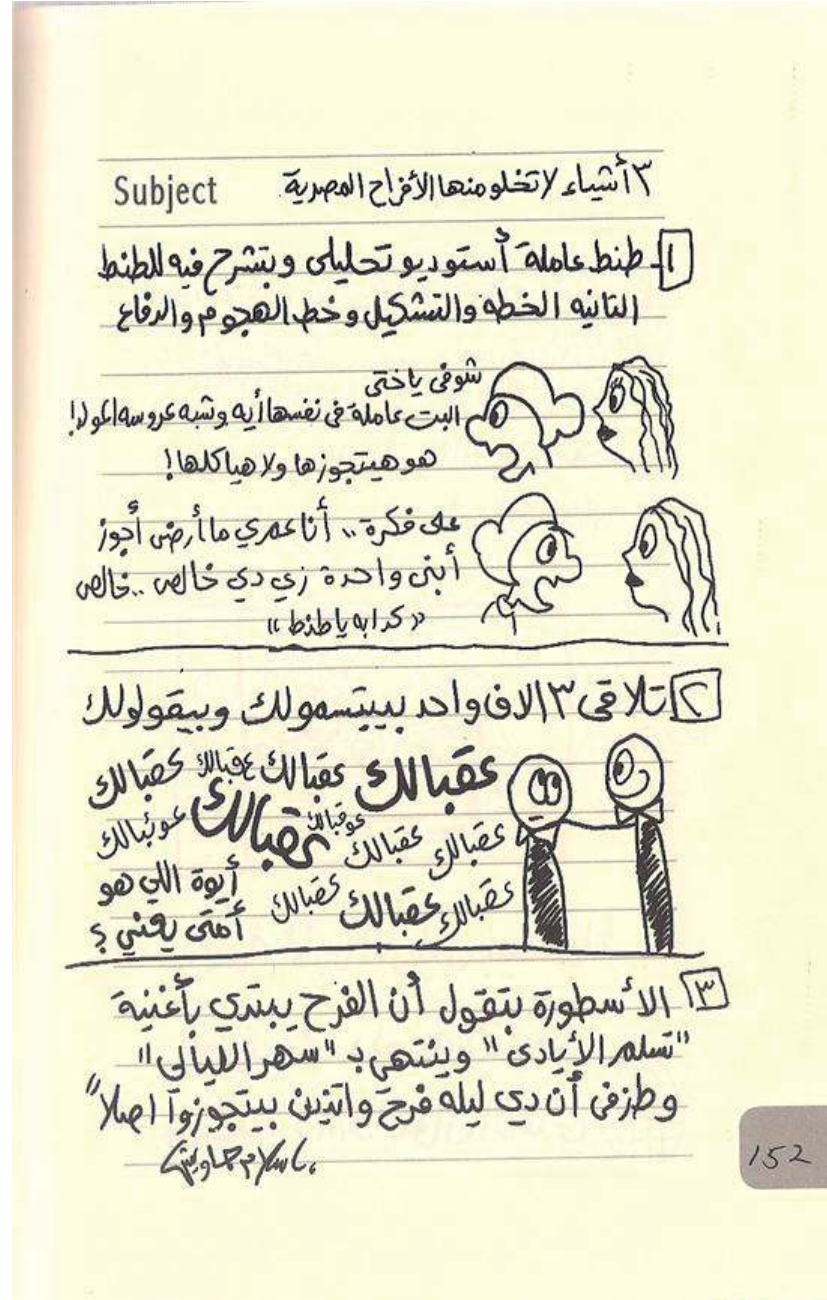 Subject
٣ أشياء لا تخلو منها الأفراح المصرية
١- طنط عاملة أستوديو تحليلى وبتشرح فيه للطنط
التانيه الخطه والتشكيل وخط الهجوم والدفاع
شوفى ياختى
البت عاملة فى نفسها أيه وشبه عروسه المولد!
هو هيتجوزها ولا هياكلها!
على فكرة.. أنا عمري ما أرضى أجوز
أبنى واحدة زي دي خالص.. خالص
«كدابه يا طنط»
٢ تلاقى ٣ الاف واحد بيبتسمولك وبيقولولك
عقبالك عقبالك عقبالك عقبالك
عقبالك عوقبالك عوئبالك
عقبالك عقبالك
عقبالك عقبالك عقبالك عقبالك
أيوة اللي هو
أمتى يعني؟
٣ الأسطورة بتقول أن الفرح يبتدي بأغنية
"تسلم الأيادى" وينتهي بـ "سهر الليالى"
وطز فى أن دي ليله فرح واتنين بيتجوزوا اصلاً
إسلام جاويش
152